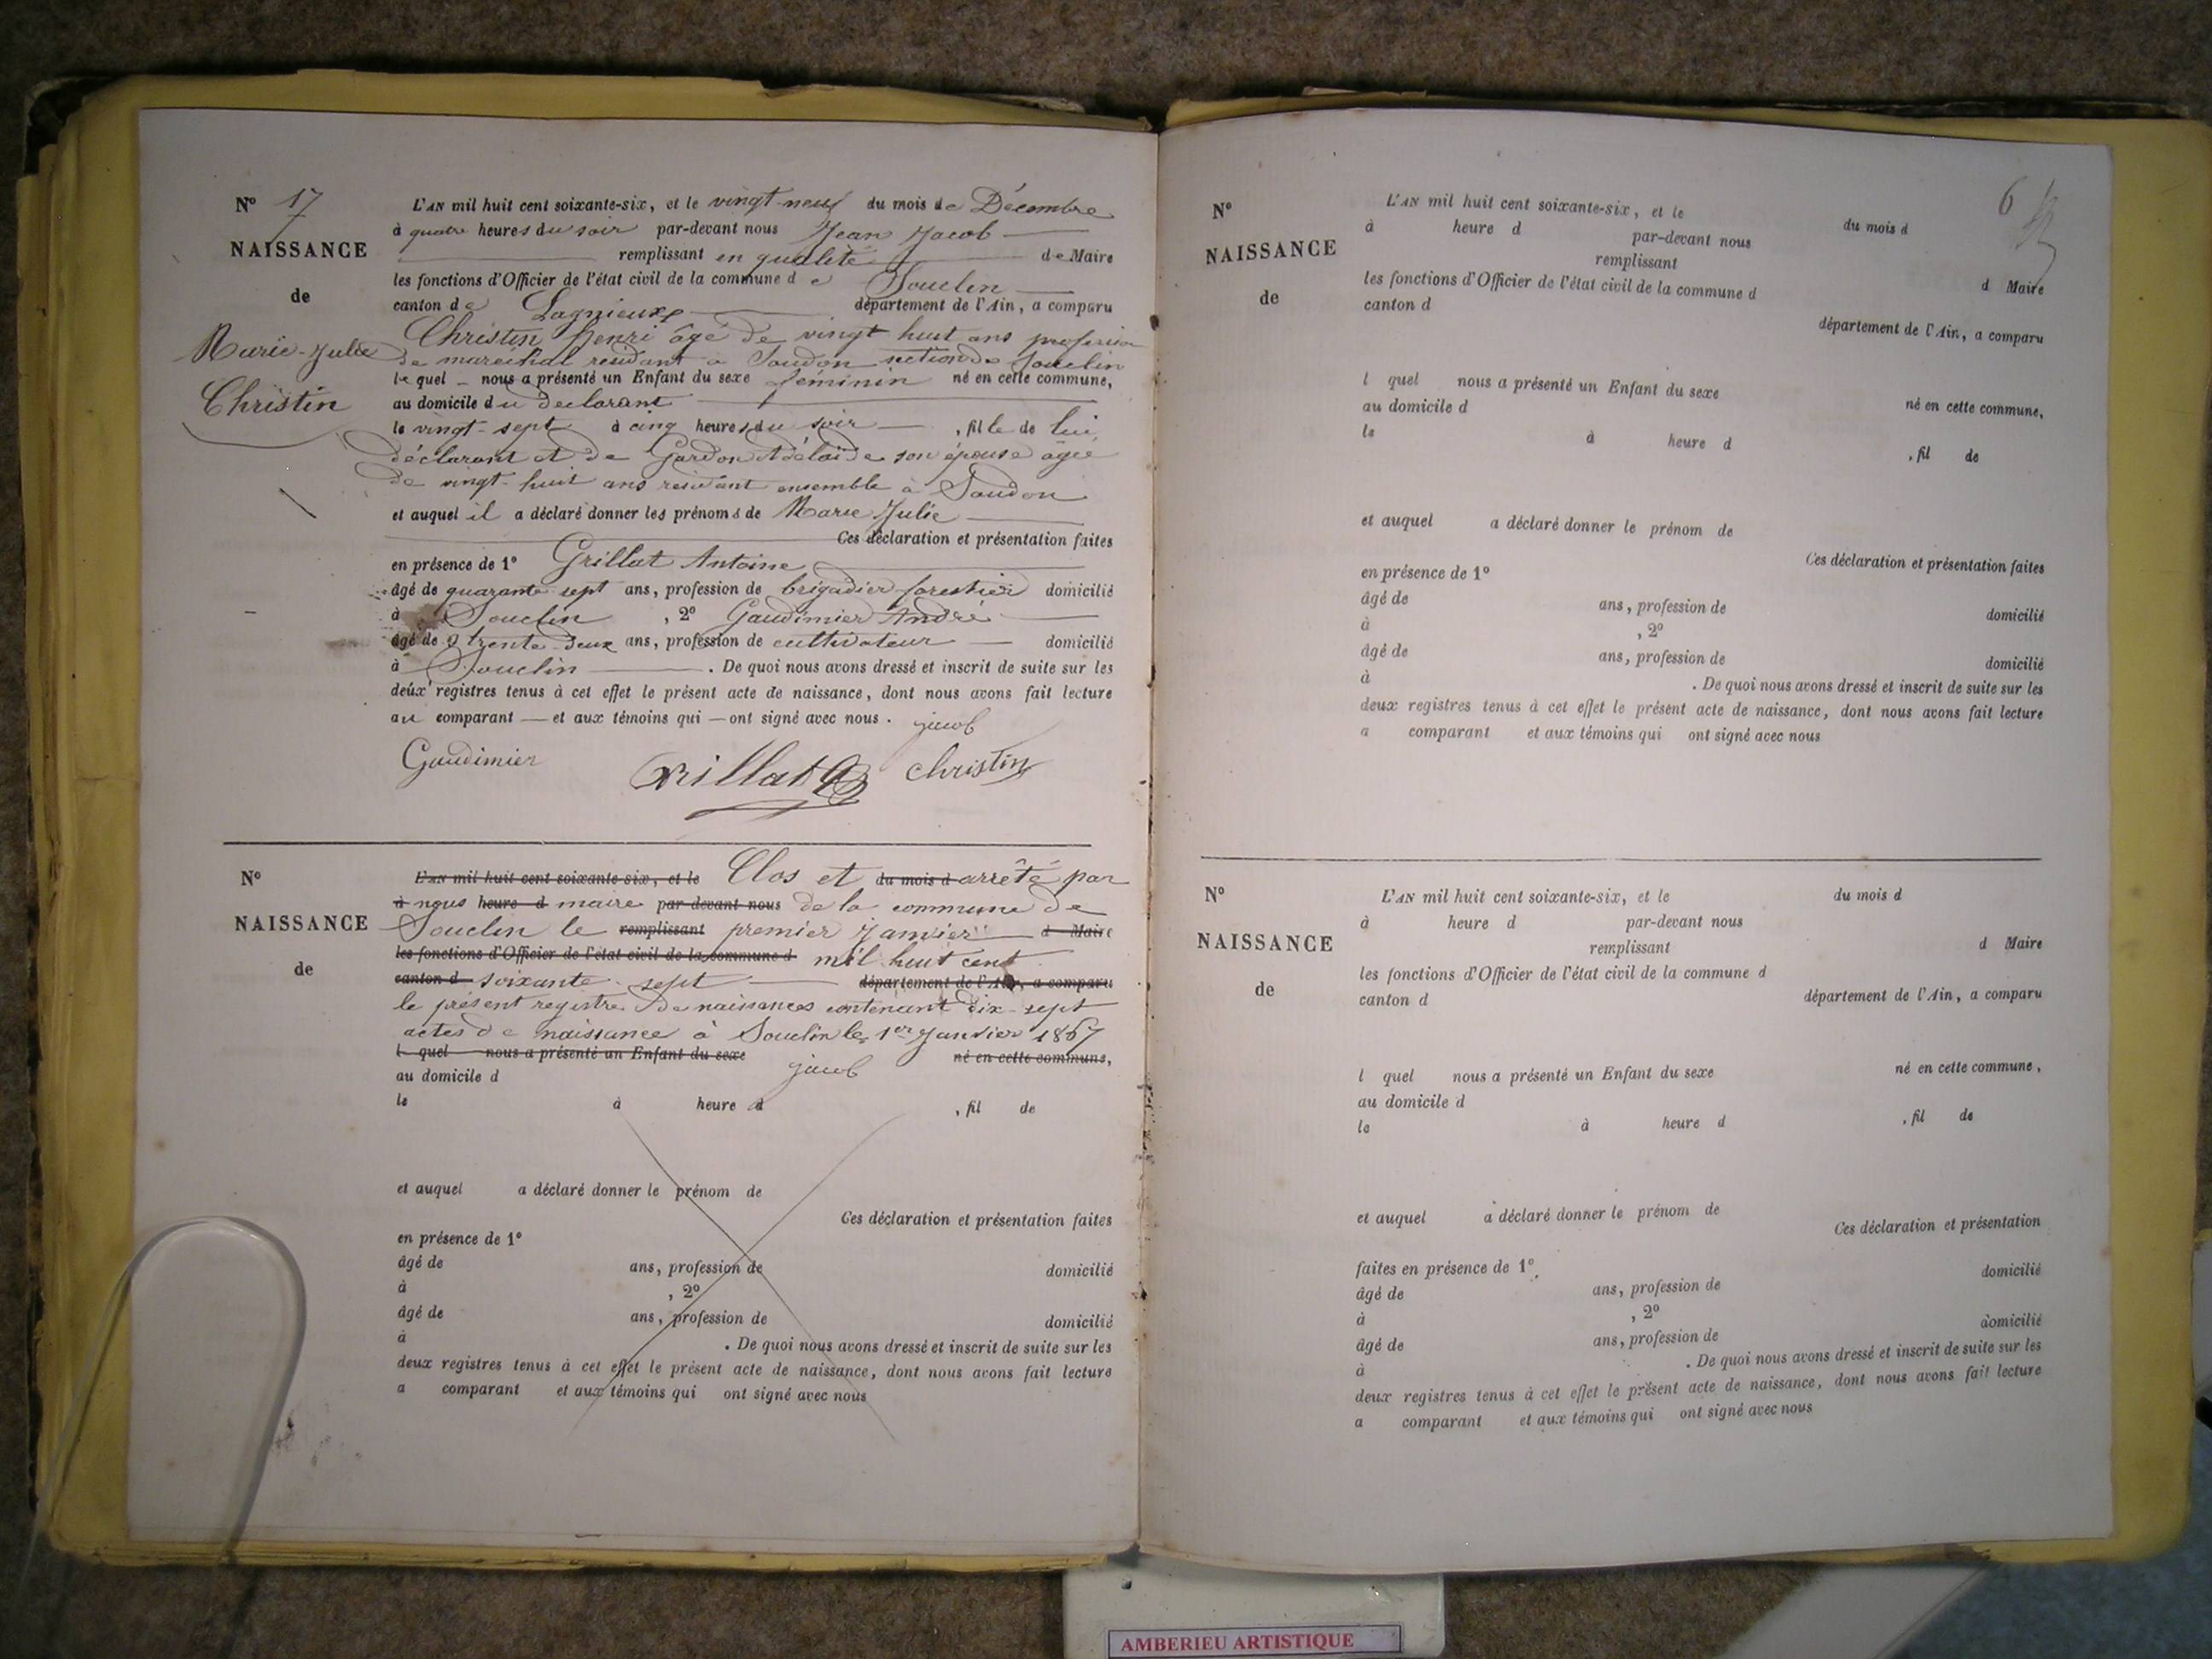 N° 17
NAISSANCE
de
Marie-Julie
Christin
L'AN mil huit cent soixante-six, et le vingt-neuf du mois de Décembre
à quatre heures du soir par-devant nous Jean Jacob
remplissant en qualité de Maire
les fonctions d'Officier de l'état civil de la commune de Souclin
canton de Lagnieux département de l'Ain, a comparu
Christin henri âgé de vingt huit ans profession
de maréchal résidant à Soudon section de Souclin
lequel nous a présenté un Enfant du sexe féminin né en cette commune,
au domicile du déclarant
le vingt-sept à cinq heures du soir , fille de lui
déclarant et de Gardon Adélaïde son épouse âgée
de vingt-huit ans résidant ensemble à Soudon
et auquel il a déclaré donner les prénoms de Marie Julie
Ces déclaration et présentation faites
en présence de 1° Grillat Antoine
âgé de quarante sept ans, profession de brigadier forestier domicilié
à Souclin , 2° Gaudimier André
âgé de trente-deux ans, profession de cultivateur domicilié
à Souclin . De quoi nous avons dressé et inscrit de suite sur les
deux registres tenus à cet effet le présent acte de naissance, dont nous avons fait lecture
au comparant — et aux témoins qui — ont signé avec nous . jacob
Gaudimier Grillat christin
N°
NAISSANCE
de
L'AN mil huit cent soixante-six, et le Clos et du mois d arrêté par
à nous heure d maire par-devant nous de la commune de
Souclin le remplissant premier Janvier d Maire
les fonctions d'Officier de l'état civil de la commune d mil huit cent
canton d soixante-sept département de l'Ain, a comparu
le présent registre de naissances contenant dix-sept
actes de naissance à Souclin le 1er Janvier 1867
l quel nous a présenté un Enfant du sexe né en cette commune,
jacob
au domicile d
le à heure d , fil de
et auquel a déclaré donner le prénom de
Ces déclaration et présentation faites
en présence de 1°
âgé de ans, profession de domicilié
à , 2°
âgé de ans, profession de domicilié
à . De quoi nous avons dressé et inscrit de suite sur les
deux registres tenus à cet effet le présent acte de naissance, dont nous avons fait lecture
a comparant et aux témoins qui ont signé avec nous
6
N°
NAISSANCE
de
L'AN mil huit cent soixante-six, et le du mois d
à heure d par-devant nous
remplissant d Maire
les fonctions d'Officier de l'état civil de la commune d
canton d département de l'Ain, a comparu
l quel nous a présenté un Enfant du sexe né en cette commune,
au domicile d
le à heure d , fil de
et auquel a déclaré donner le prénom de
Ces déclaration et présentation faites
en présence de 1°
âgé de ans, profession de domicilié
à , 2°
âgé de ans, profession de domicilié
à . De quoi nous avons dressé et inscrit de suite sur les
deux registres tenus à cet effet le présent acte de naissance, dont nous avons fait lecture
a comparant et aux témoins qui ont signé avec nous
N°
NAISSANCE
de
L'AN mil huit cent soixante-six, et le du mois d
à heure d par-devant nous
remplissant d Maire
les fonctions d'Officier de l'état civil de la commune d
canton d département de l'Ain, a comparu
l quel nous a présenté un Enfant du sexe né en cette commune,
au domicile d
le à heure d , fil de
et auquel a déclaré donner le prénom de
Ces déclaration et présentation
faites en présence de 1°
âgé de ans, profession de domicilié
à , 2°
âgé de ans, profession de domicilié
à . De quoi nous avons dressé et inscrit de suite sur les
deux registres tenus à cet effet le présent acte de naissance, dont nous avons fait lecture
a comparant et aux témoins qui ont signé avec nous
AMBERIEU ARTISTIQUE